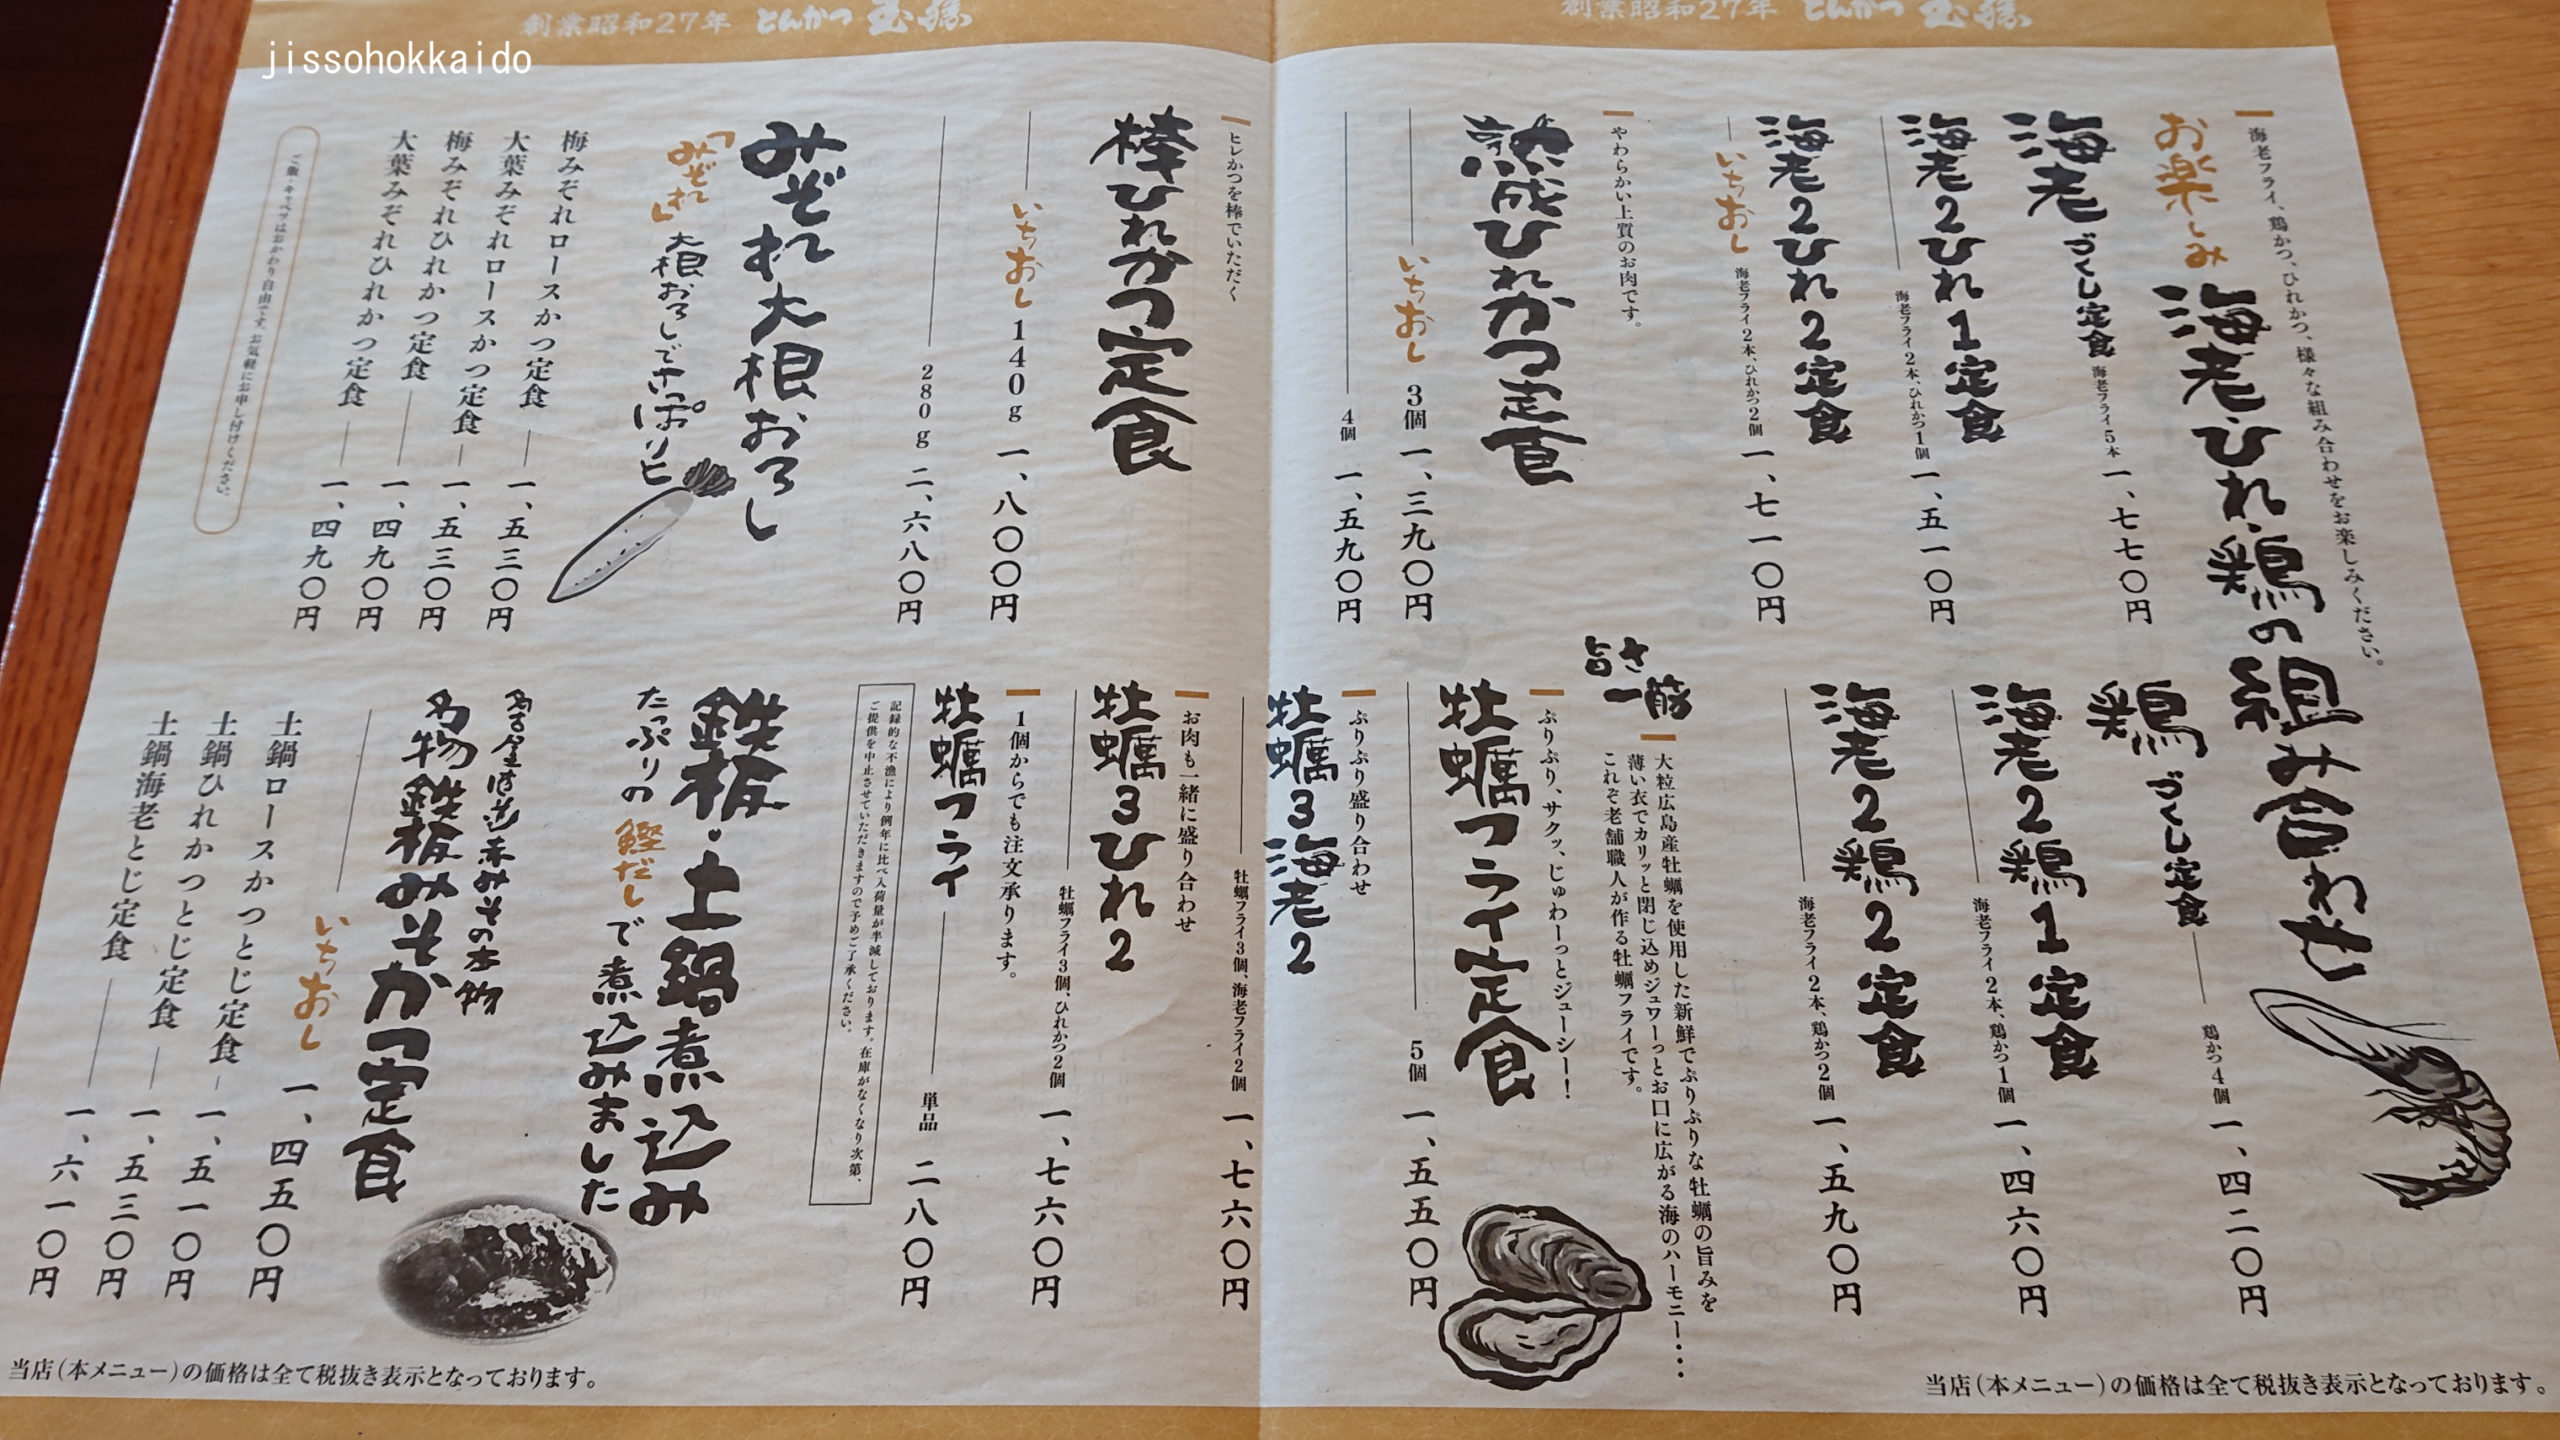 jissohokkaido
創業昭和27年 とんかつ 玉藤
創業昭和27年 とんかつ 玉藤
海老フライ、鶏かつ、ひれかつ、様々な組み合わせをお楽しみください。
お楽しみ 海老・ひれ・鶏の組み合わせ
海老づくし定食 海老フライ5本 一、七七〇円
海老2ひれ1定食 海老フライ2本、ひれかつ1個 一、五一〇円
海老2ひれ2定食
いちおし 海老フライ2本、ひれかつ2個 一、七一〇円
鶏づくし定食 鶏かつ4個 一、四二〇円
海老2鶏1定食 海老フライ2本、鶏かつ1個 一、四六〇円
海老2鶏2定食 海老フライ2本、鶏かつ2個 一、五九〇円
やわらかい上質のお肉です。
熟成ひれかつ定食
いちおし 3個 一、三九〇円
4個 一、五九〇円
旨さ一筋
大粒広島産牡蠣を使用した新鮮でぷりぷりな牡蠣の旨みを
薄い衣でカリッと閉じ込めジュワーっとお口に広がる海のハーモニー・・・
これぞ老舗職人が作る牡蠣フライです。
ぷりぷり、サクッ、じゅわーっとジューシー!
牡蠣フライ定食
5個 一、五五〇円
ぷりぷり盛り合わせ
牡蠣3海老2
牡蠣フライ3個、海老フライ2個 一、七六〇円
お肉も一緒に盛り合わせ
牡蠣3ひれ2
牡蠣フライ3個、ひれかつ2個 一、七六〇円
1個からでも注文承ります。
牡蠣フライ 単品 二八〇円
記録的な不漁により例年に比べ入荷量が半減しております。在庫がなくなり次第、
ご提供を中止させていただきますので予めご了承ください。
ヒレかつを棒でいただく
棒ひれかつ定食
いちおし 140g 一、八〇〇円
280g 二、六八〇円
みぞれ大根おろし
「みぞれ」大根おろしでさっぱりと
梅みぞれロースかつ定食 一、五三〇円
大葉みぞれロースかつ定食 一、五三〇円
梅みぞれひれかつ定食 一、四九〇円
大葉みぞれひれかつ定食 一、四九〇円
ご飯・キャベツはおかわり自由です。お気軽にお申し付けください。
鉄板・土鍋煮込み
たっぷりの鰹だしで煮込みました
名古屋直送赤みその本物
名物鉄板みそかつ定食
いちおし 一、四五〇円
土鍋ロースかつとじ定食 一、五一〇円
土鍋ひれかつとじ定食 一、五三〇円
土鍋海老とじ定食 一、六一〇円
当店(本メニュー)の価格は全て税抜き表示となっております。
当店(本メニュー)の価格は全て税抜き表示となっております。